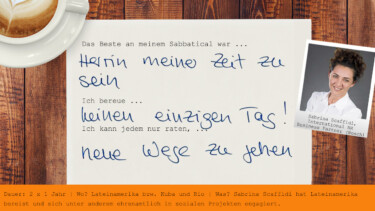 Das Beste an meinem Sabbatical war ...
Herrin meiner Zeit zu
sein
Ich bereue ...
keinen einzigen Tag!
Ich kann jedem nur raten, ...
neue Wege zu gehen
Sabrina Scaffidi,
International HR
Business Partner, Bosch
Dauer: 2 x 1 Jahr | Wo? Lateinamerika bzw. Kuba und Rio | Was? Sabrina Scaffidi hat Lateinamerika
bereist und sich unter anderem ehrenamtlich in sozialen Projekten engagiert.